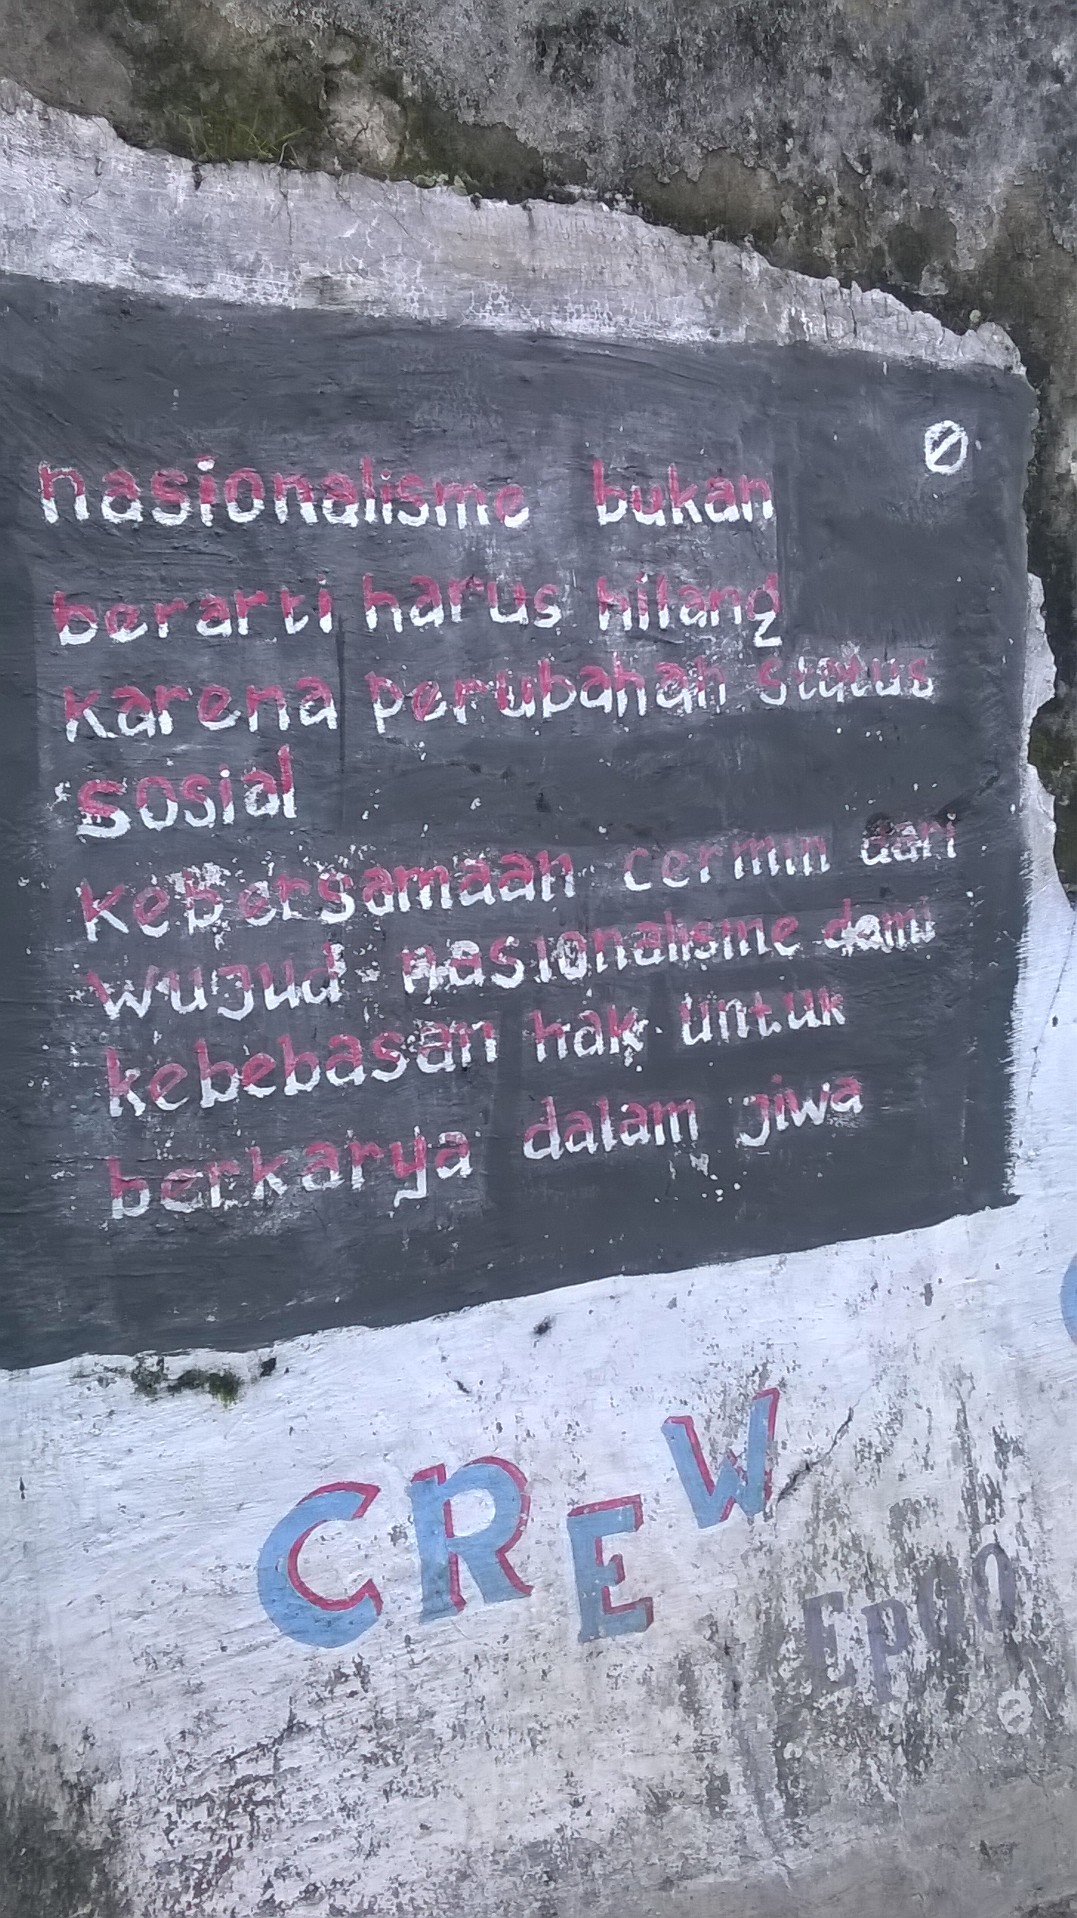 Ø
nasionalisme bukan
berarti harus hilang
karena perubahan status
sosial
kebersamaan cermin dari
wujud nasionalisme demi
kebebasan hak untuk
berkarya dalam jiwa
CREW